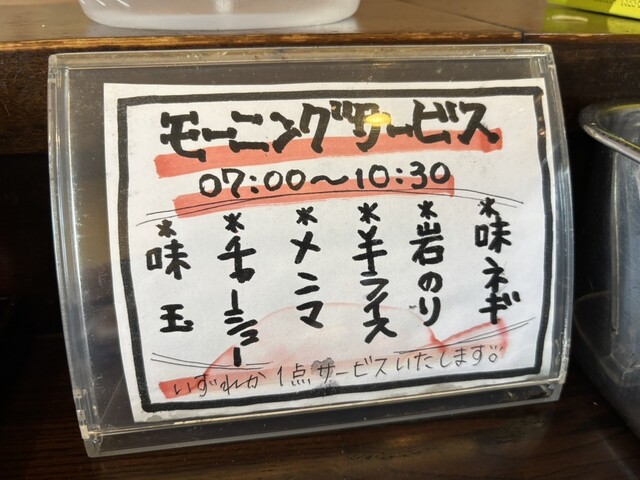 モーニングサービス
07:00〜10:30
*味ネギ
*岩のり
*半ライス
*メンマ
*チャーシュー
*味玉
いずれか1点サービスいたします。